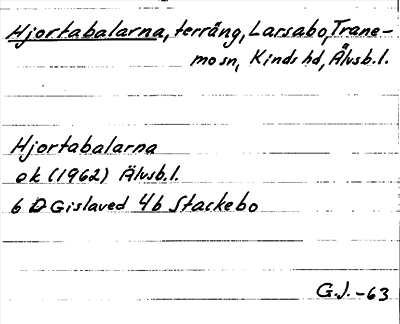 Hjortabalarna, terräng, Larsabo, Trane-
mo sn, Kinds hd, Älvsb.l.
Hjortabalarna
ek (1962) Älvsb.l.
6 D Gislaved 4b Stackebo
G.J. -63